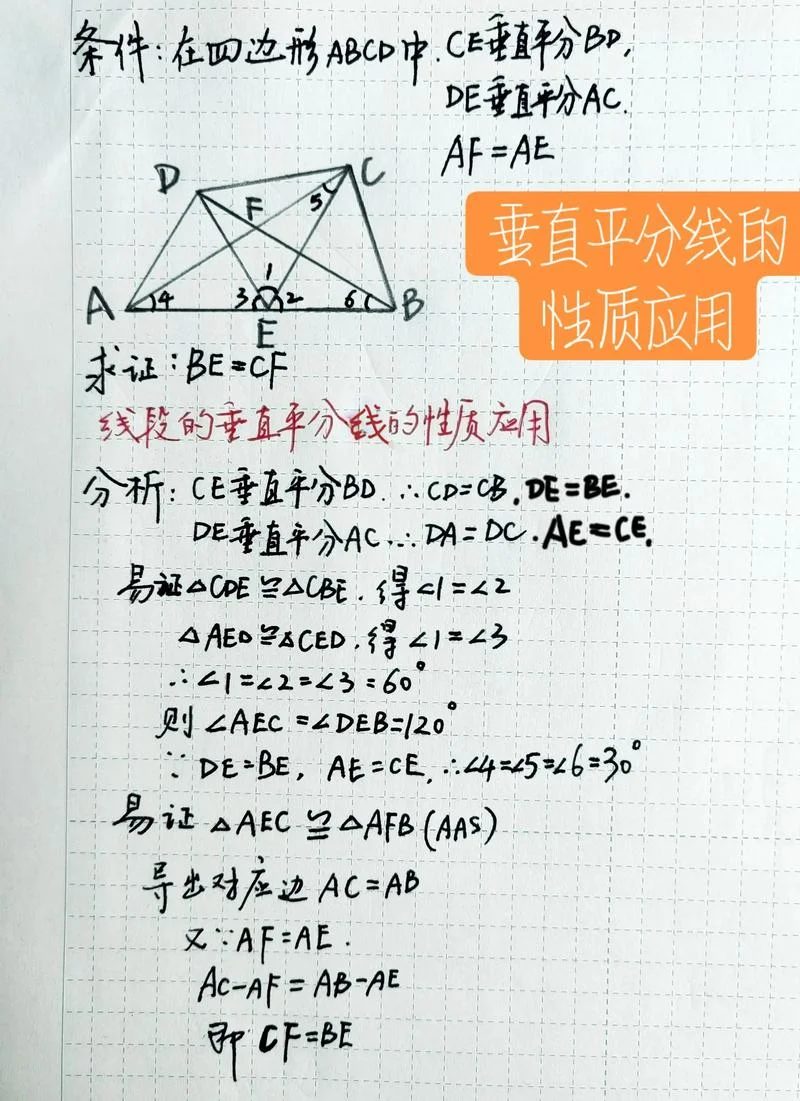 条件:在四边形ABCD中.CE垂直平分BD,
DE垂直平分AC.
AF=AE
垂直平分线的
性质应用
D
C
F
5
1
A
4
3
2
6
B
E
求证:BE=CF
线段的垂直平分线的性质应用
分析:CE垂直平分BD.∴CD=CB.DE=BE.
DE垂直平分AC.∴DA=DC.AE=CE.
易证△CDE≌△CBE.得∠1=∠2
△AED≌△CED.得∠1=∠3
∴∠1=∠2=∠3=60°
则∠AEC=∠DEB=120°
∵DE=BE, AE=CE.∴∠4=∠5=∠6=30°
易证△AEC≌△AFB(AAS)
导出对应边AC=AB
又∵AF=AE.
AC-AF=AB-AE
即CF=BE